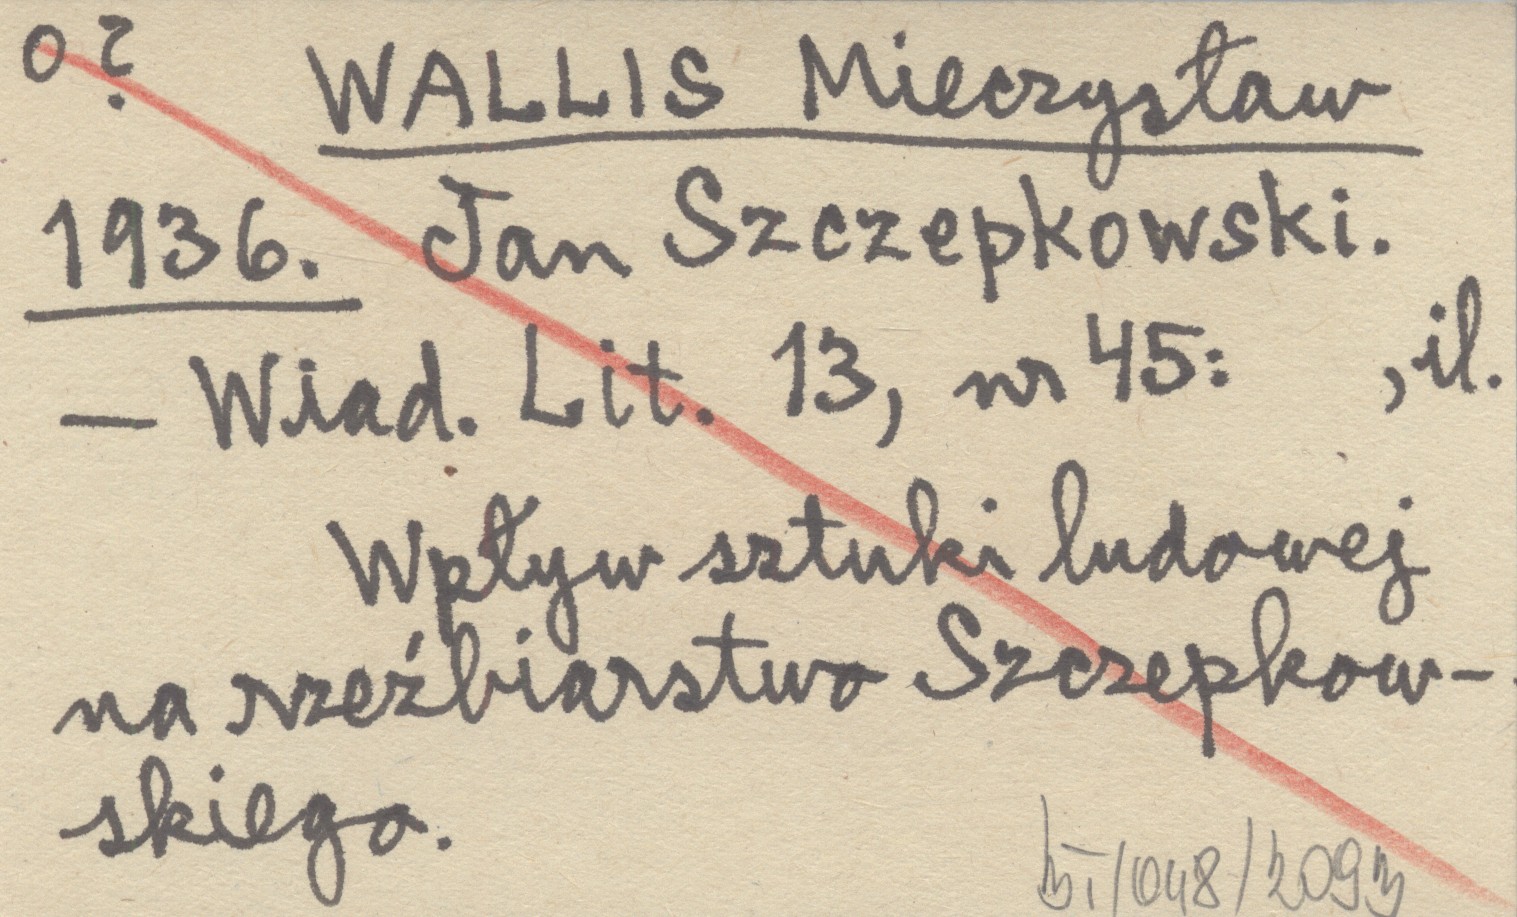 o? WALLIS Mieczysław
1936. Jan Szczepkowski.
— Wiad. Lit. 13, nr 45: , il.
Wpływ sztuki ludowej
na rzeźbiarstwo Szczepkow-
skiego.
/048/2093